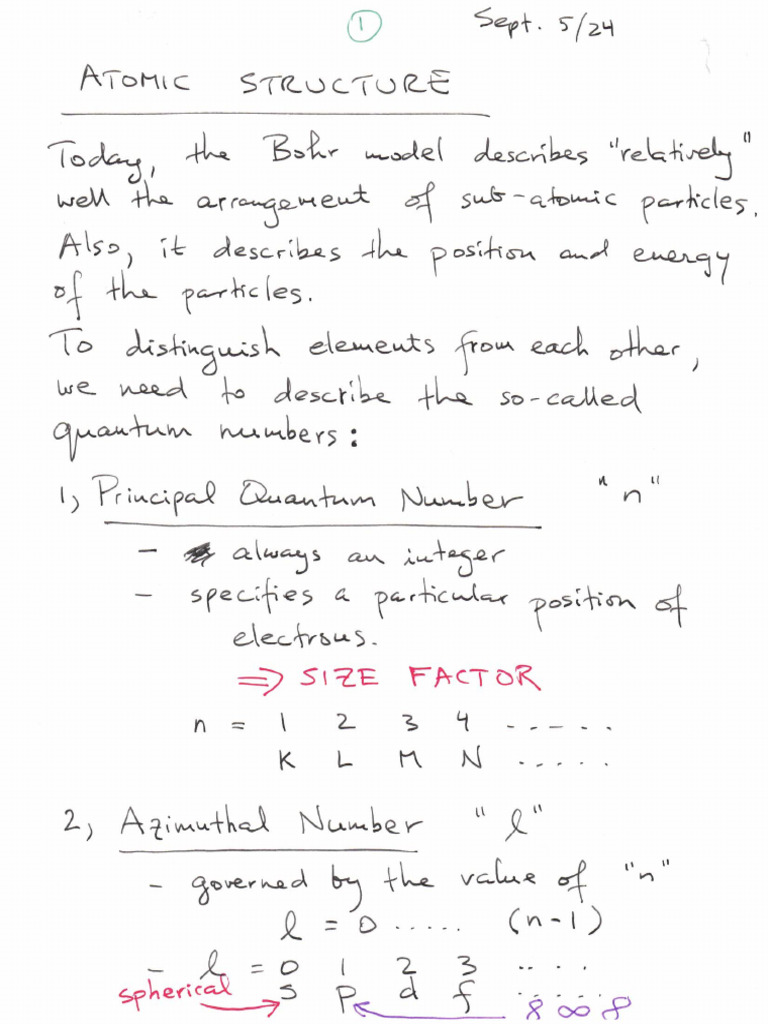 1
Sept. 5/24
ATOMIC STRUCTURE
Today, the Bohr model describes "relatively"
well the arrangement of sub-atomic particles.
Also, it describes the position and energy
of the particles.
To distinguish elements from each other,
we need to describe the so-called
quantum numbers:
1, Principal Quantum Number "n"
- always an integer
- specifies a particular position of
electrons.
⇒ SIZE FACTOR
n = 1 2 3 4 ......
K L M N ......
2, Azimuthal Number "l"
- governed by the value of "n"
l = 0 ..... (n-1)
- l = 0 1 2 3 ....
spherical → s p d f ...... ← 8 ∞ 8